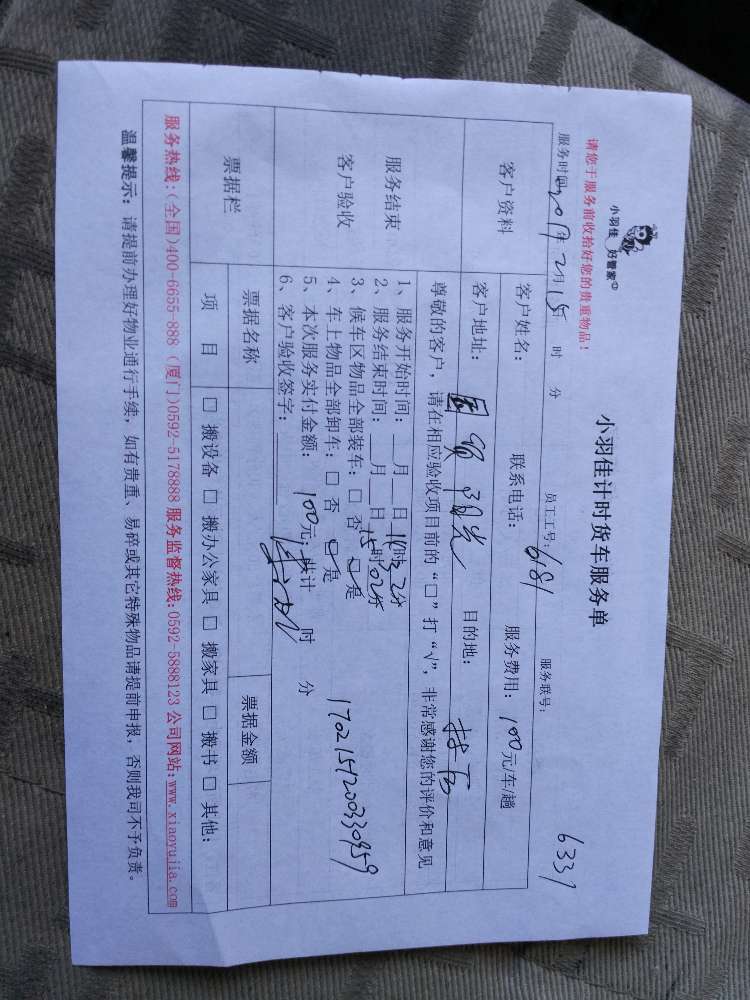 小羽佳 好管家
小羽佳计时货车服务单
请您于服务前收拾好您的贵重物品！
6337
服务时间：2017年2月15 时 分 员工工号：6181 服务联号：
客户资料
客户姓名： 联系电话： 服务费用：100元/车/趟
客户地址：国贸阳光 目的地：
尊敬的客户，请在相应验收项目前的“□”打“√”，非常感谢您的评价和意见
服务结束
客户验收
1、服务开始时间：__月__日 时 分
2、服务结束时间：__月__日15时02分
3、候车区物品全部装车：□ 否 □ 是
4、车上物品全部卸车：□ 否 □ 是
5、本次服务实付金额： 100元；共计 时 分
6、客户验收签字：
1702151200330959
票据栏
票据名称 票据金额
项 目 □ 搬设备 □ 搬办公家具 □ 搬家具 □ 搬书 □ 其他：
服务热线：(全国)400-6655-888 (厦门)0592-5178888 服务监督热线:0592-5888123 公司网站:www.xiaoyujia.com
温馨提示：请提前办理好物业通行手续，如有贵重、易碎或其它特殊物品请提前申报，否则我司不予负责。